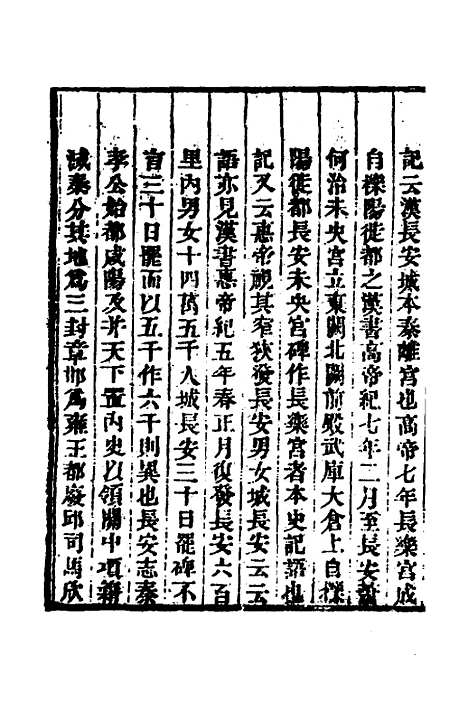 記云漢長安城本秦離宮也高帝七年長樂宮成
自櫟陽徙都之漢書高帝紀七年二月至長安蕭
何治未央宮立東闕北闕前殿武庫大倉上自櫟
陽徙都長安未央宮碑作長樂宮者本史記語也
記又云惠帝視其窄狹發長安男女城長安云云
語亦見漢書惠帝紀五年春正月復發長安六百
里內男女十四萬五千人城長安三十日罷碑不
言三十日罷而以五千作六千則異也長安志秦
孝公始都咸陽及并天下置內史以領關中項籍
滅秦分其地爲三封章邯爲雍王都廢邱司馬欣